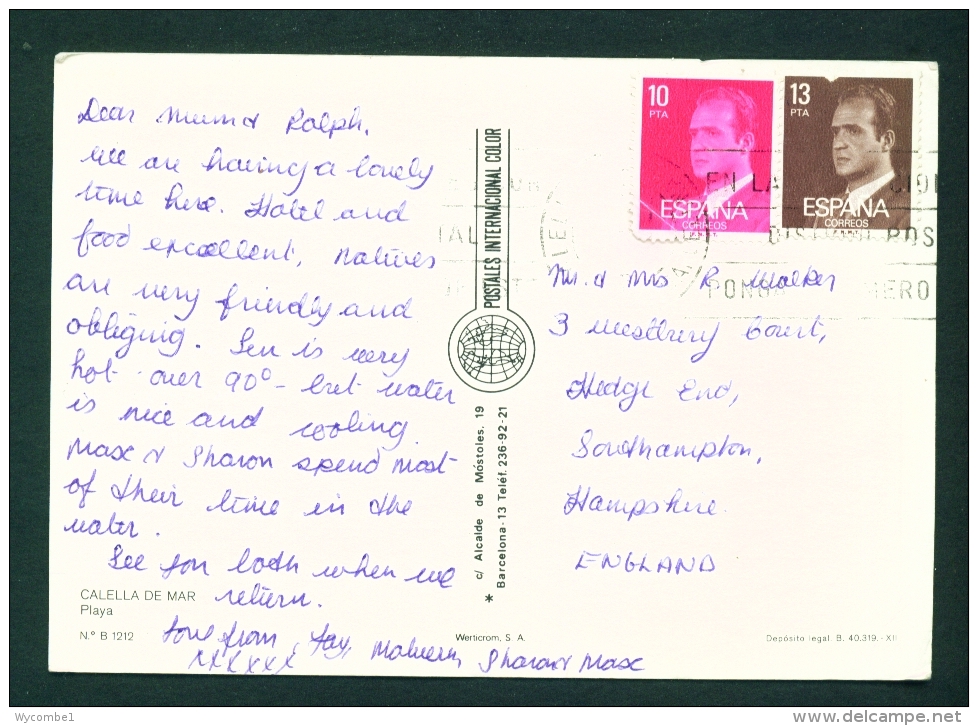 Dear Mum & Ralph,
We are having a lovely
time here. Hotel and
food excellent, natives
are very friendly and
obliging. Sun is very
hot over 90° - but water
is nice and cooling.
Max & Sharon spend most
of their time in the
water.
See you both when we
return.
Love from, Fay, Malvern, Sharon & Max
xxxxxx
CALELLA DE MAR
Playa
N.° B 1212
Werticrom, S. A.
Depósito legal. B. 40.319.-XII
POSTALES INTERNACIONAL COLOR
* c/ Alcalde de Móstoles. 19
Barcelona-13 Teléf. 236-92-21
10
PTA
ESPAÑA
CORREOS
13
PTA
ESPAÑA
CORREOS
EN LA
PONGA
Mr. & Mrs R. Walker
3 Westbury Court,
Hedge End,
Southampton,
Hampshire.
ENGLAND
Wycombe1
www.delcampe.net